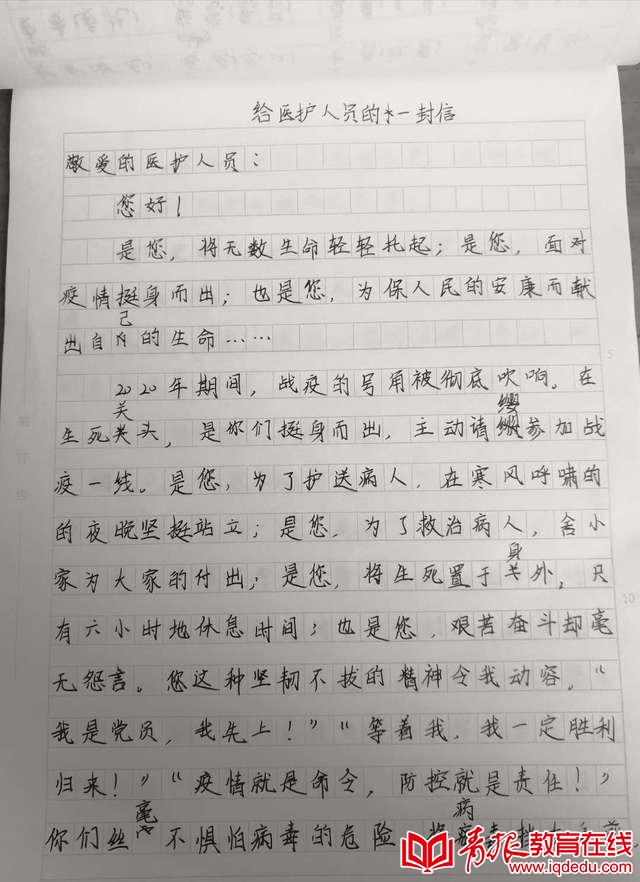 给医护人员的一封信
敬爱的医护人员：
您好！
是您，将无数生命轻轻托起；是您，面对
疫情挺身而出；也是您，为保人民的安康而献
出自己的生命……
2020年期间，战疫的号角被彻底吹响。在
生死关头，是你们挺身而出，主动请缨参加战
疫一线。是您，为了护送病人，在寒风呼啸的
的夜晚坚挺站立；是您，为了救治病人，舍小
家为大家的付出；是您，将生死置于身外，只
有六小时地休息时间；也是您，艰苦奋斗却毫
无怨言。您这种坚韧不拔的精神令我动容。“
我是党员，我先上！”“等着我，我一定胜利
归来！”“疫情就是命令，防控就是责任！”
你们丝毫不惧怕病毒的危险，将病毒
青报教育在线
www.iqdedu.com
5
10